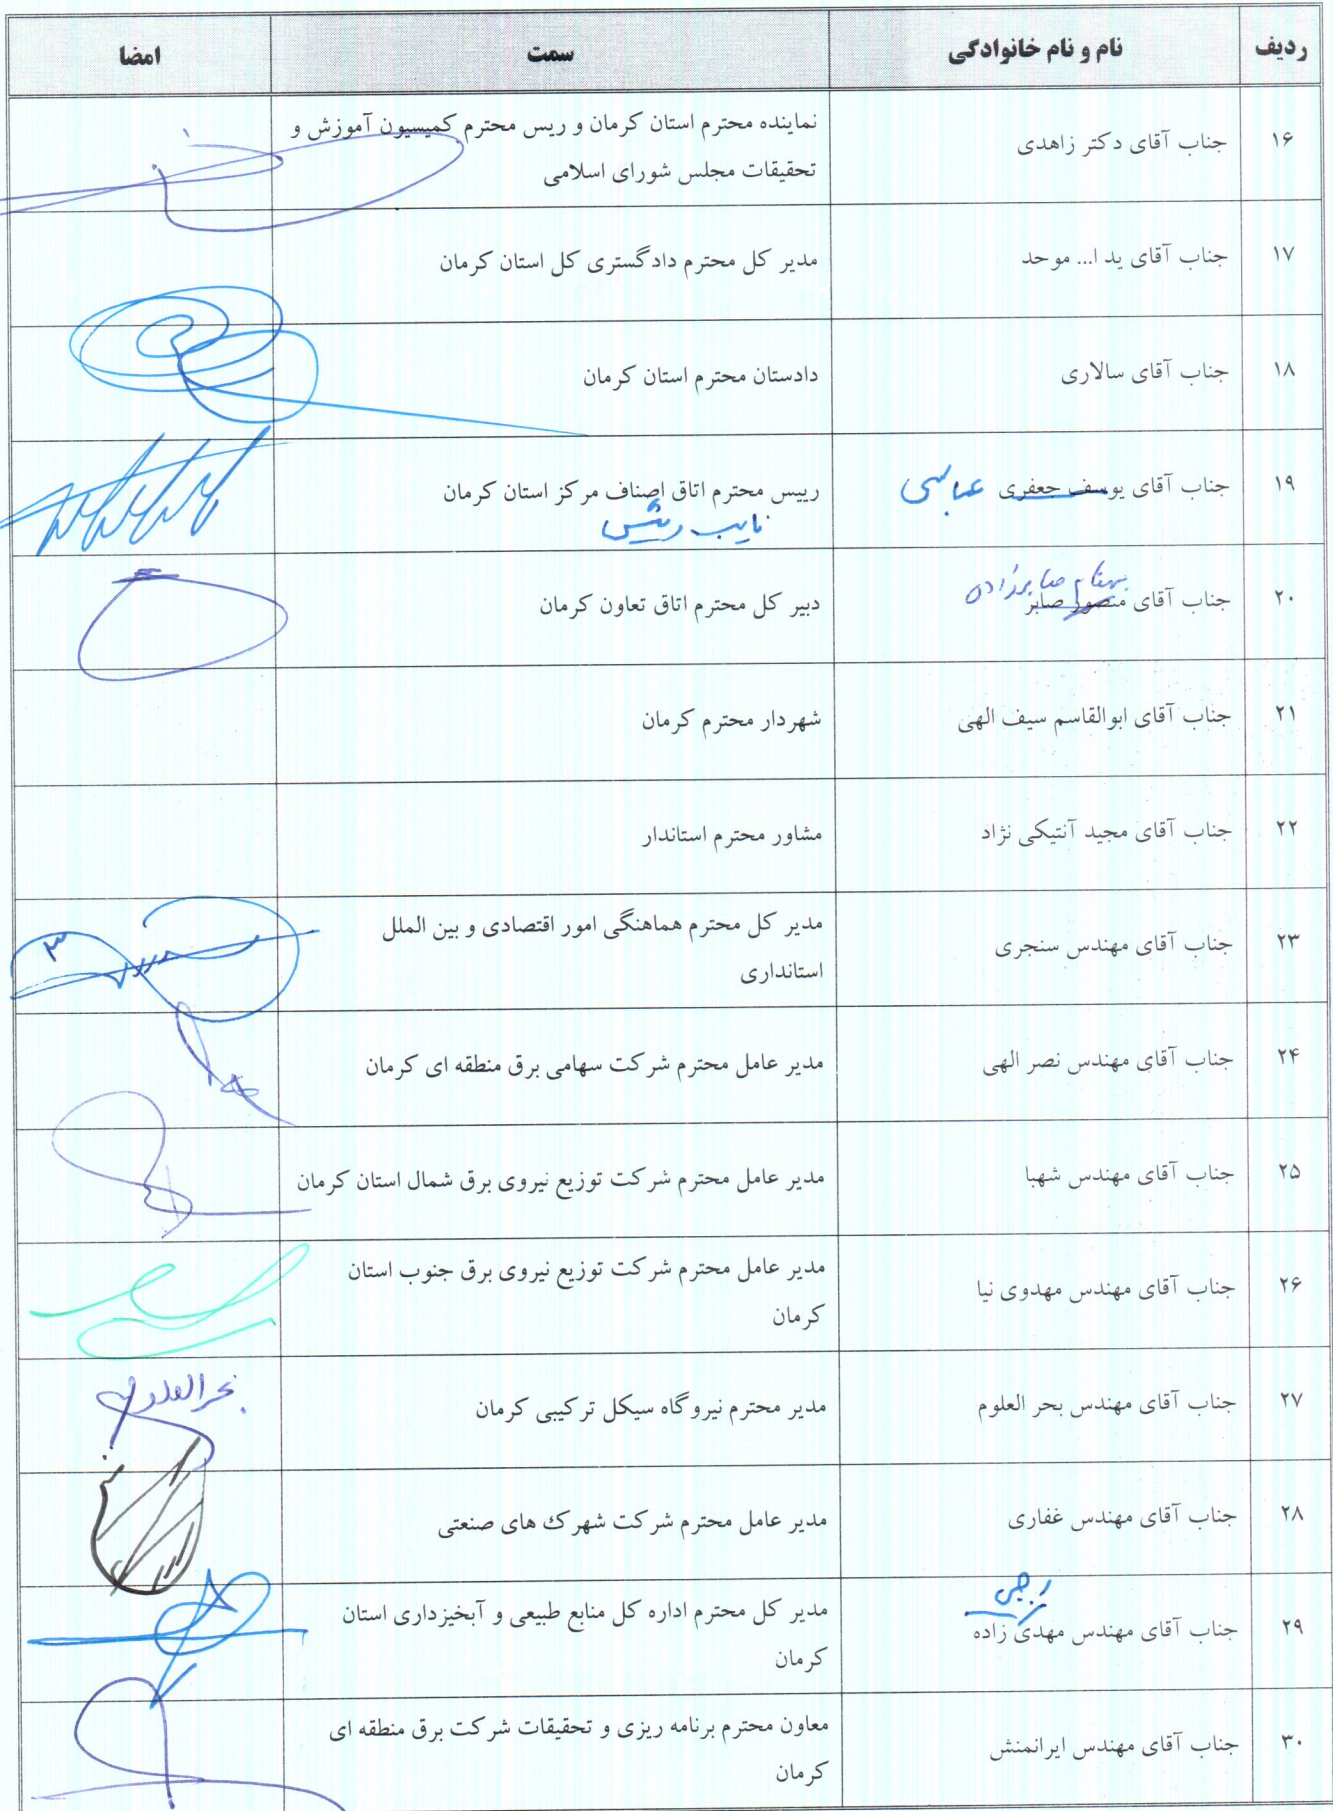 ردیف نام و نام خانوادگی سمت امضا
۱۶ جناب آقای دکتر زاهدی نماینده محترم استان کرمان و ریس محترم کمیسیون آموزش و
تحقیقات مجلس شورای اسلامی
۱۷ جناب آقای ید ا... موحد مدیر کل محترم دادگستری کل استان کرمان
۱۸ جناب آقای سالاری دادستان محترم استان کرمان
۱۹ جناب آقای یوسف جعفری عباسی رییس محترم اتاق اصناف مرکز استان کرمان
نایب رئیس
بهنام صابرزاده
۲۰ جناب آقای منصور صابر دبیر کل محترم اتاق تعاون کرمان
۲۱ جناب آقای ابوالقاسم سیف الهی شهردار محترم کرمان
۲۲ جناب آقای مجید آنتیکی نژاد مشاور محترم استاندار
۲۳ جناب آقای مهندس سنجری مدیر کل محترم هماهنگی امور اقتصادی و بین الملل
استانداری
۲۴ جناب آقای مهندس نصر الهی مدیر عامل محترم شرکت سهامی برق منطقه ای کرمان
۲۵ جناب آقای مهندس شهبا مدیر عامل محترم شرکت توزیع نیروی برق شمال استان کرمان
۲۶ جناب آقای مهندس مهدوی نیا مدیر عامل محترم شرکت توزیع نیروی برق جنوب استان
کرمان
۲۷ جناب آقای مهندس بحر العلوم مدیر محترم نیروگاه سیکل ترکیبی کرمان بحرالعلوم
۲۸ جناب آقای مهندس غفاری مدیر عامل محترم شرکت شهرک های صنعتی
رجبی
۲۹ جناب آقای مهندس مهدی زاده مدیر کل محترم اداره کل منابع طبیعی و آبخیزداری استان
کرمان
۳۰ جناب آقای مهندس ایرانمنش معاون محترم برنامه ریزی و تحقیقات شرکت برق منطقه ای
کرمان